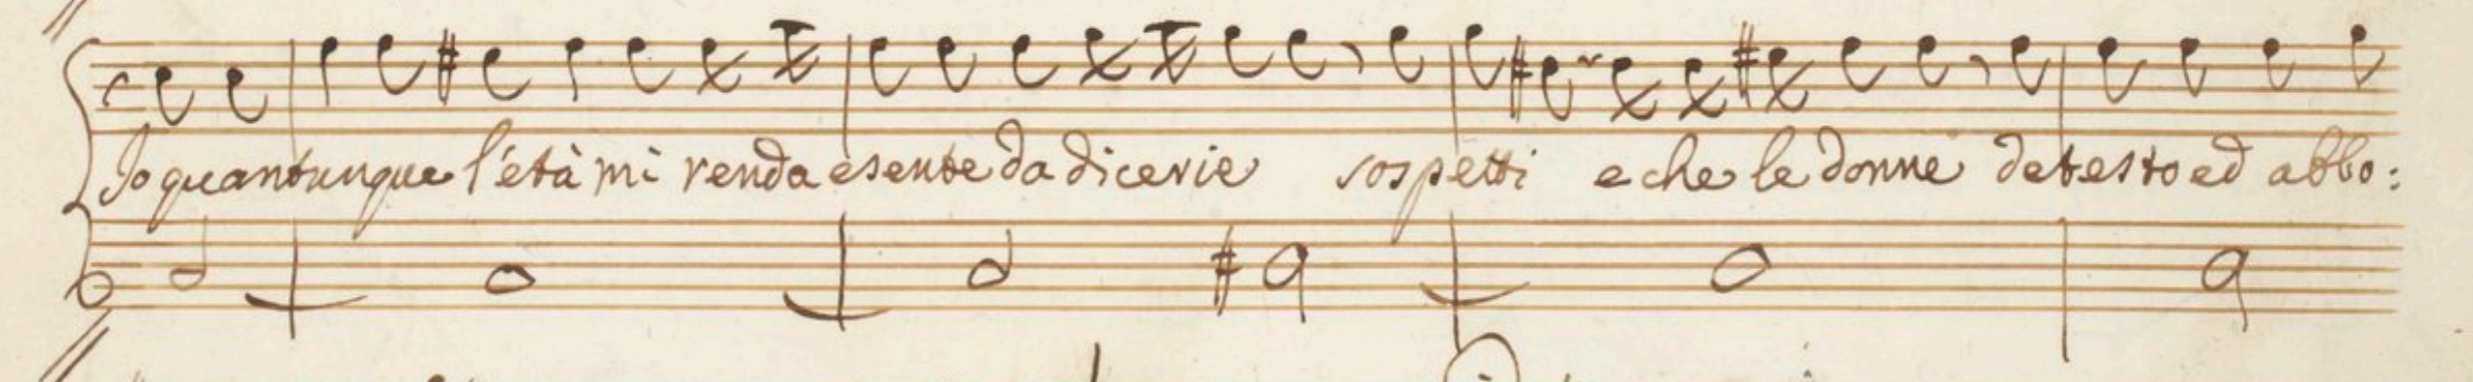 Io quantunque l'età mi renda esente da dicerie sospetti e che le donne detesto ed abbo: